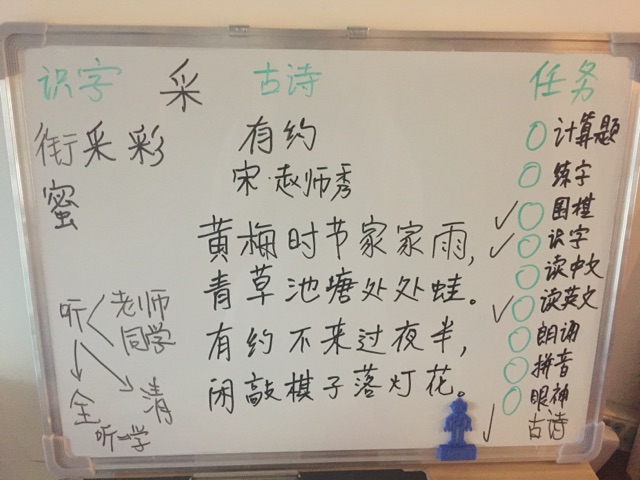 识字
采
衔采彩
蜜
听
老师
同学
全
清
听一学
古诗
有约
宋·赵师秀
黄梅时节家家雨,
青草池塘处处蛙。
有约不来过夜半,
闲敲棋子落灯花。
任务
计算题
练字
围棋
识字
读中文
读英文
朗诵
拼音
眼神
古诗